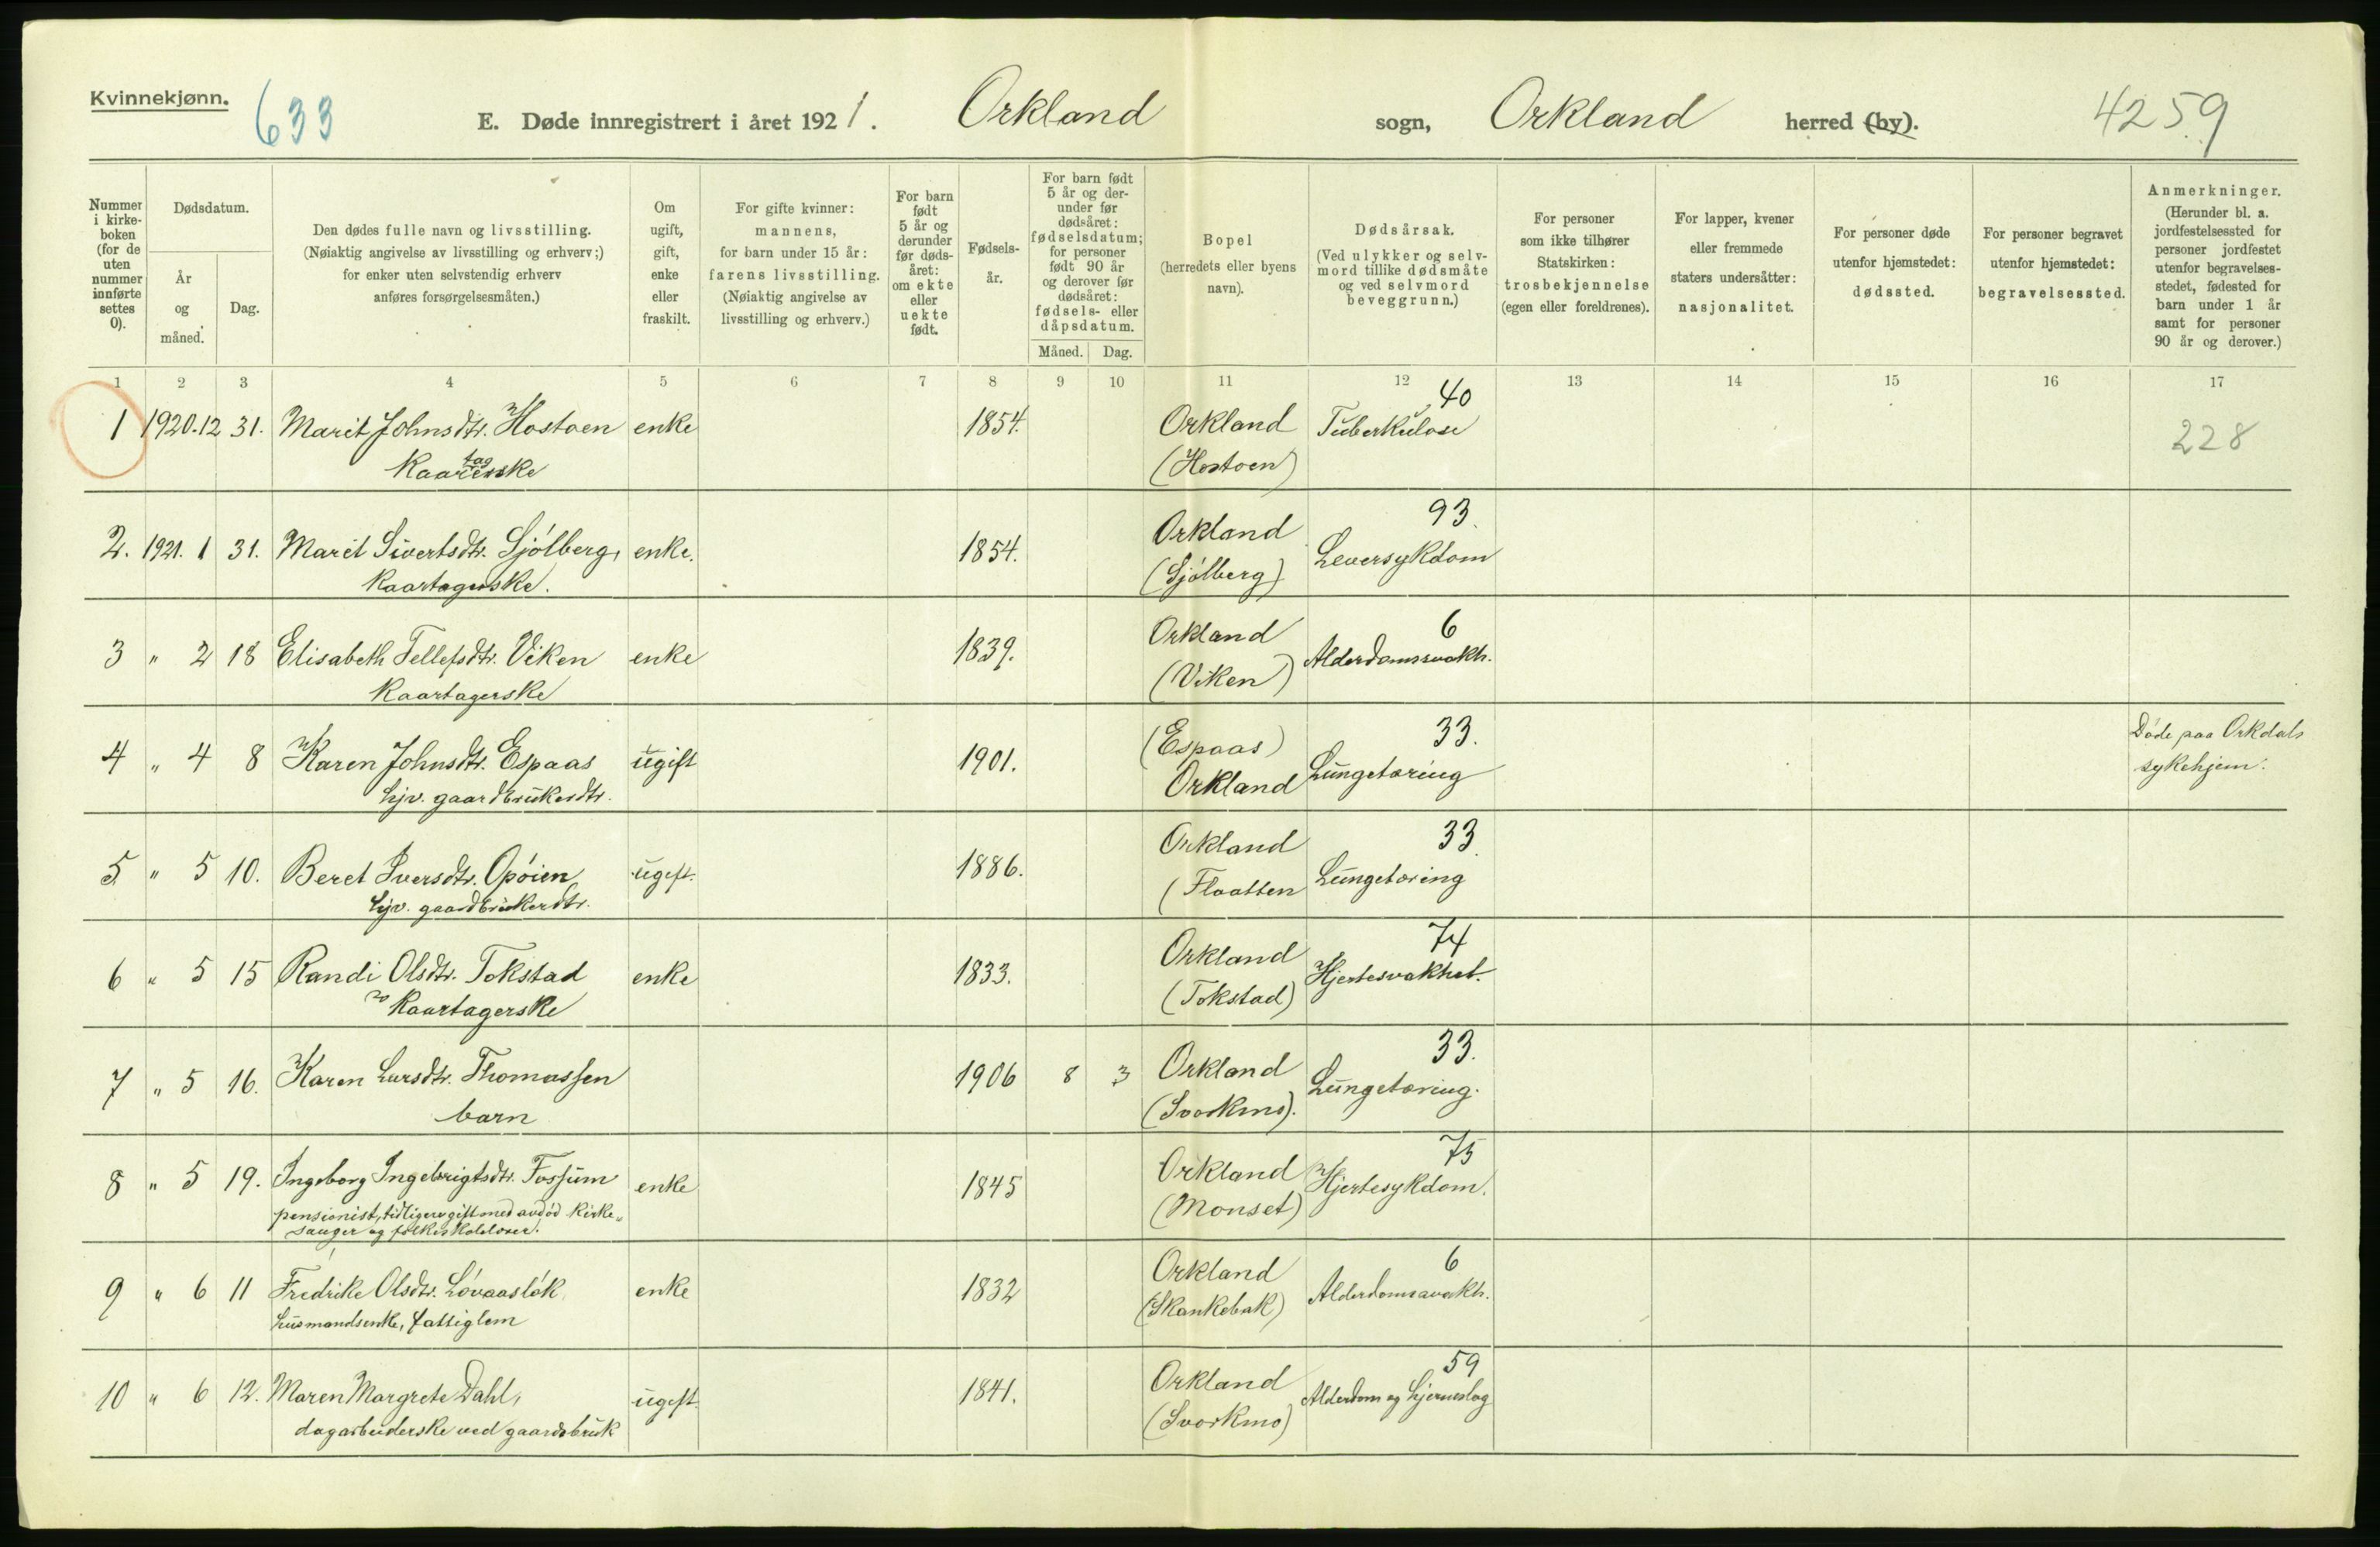 Kvinnekjønn.
633
E. Døde innregistrert i året 1921. Orkland sogn, Orkland herred (by).
4259
Nummer i kirkeboken (for de uten nummer innførte settes 0).
Dødsdatum.
År og måned.
Dag.
Den dødes fulle navn og livsstilling.
(Nøiaktig angivelse av livsstilling og erhverv;)
for enker uten selvstendig erhverv
anføres forsørgelsesmåten.)
Om ugift, gift, enke eller fraskilt.
For gifte kvinner:
mannens,
for barn under 15 år:
farens livsstilling.
(Nøiaktig angivelse av
livsstilling og erhverv.)
For barn født 5 år og derunder før dødsåret: om ekte eller uekte født.
Fødselsår.
For barn født 5 år og derunder før dødsåret: fødselsdatum; for personer født 90 år og derover før dødsåret: fødsels- eller dåpsdatum.
Måned. Dag.
Bopel
(herredets eller byens
navn).
Dødsårsak.
(Ved ulykker og selvmord tillike dødsmåte og ved selvmord beveggrunn.)
For personer som ikke tilhører Statskirken: trosbekjennelse (egen eller foreldrenes).
For lapper, kvener eller fremmede staters undersåtter: nasjonalitet.
For personer døde utenfor hjemstedet: dødssted.
For personer begravet utenfor hjemstedet: begravelsessted.
Anmerkninger.
(Herunder bl. a. jordfestelsessted for personer jordfestet utenfor begravelsesstedet, fødested for barn under 1 år samt for personer 90 år og derover.)
1 2 3 4 5 6 7 8 9 10 11 12 13 14 15 16 17
40
1 1920.12 31. Marit Johnsdtr. Hostoen enke 1854. Orkland Tuberkulose 228
(Hostoen)
93.
2. 1921. 1 31. Marit Sivertsdtr. Sjølberg, enke. 1854. Orkland Leversykdom
Kaartagerske. (Sjølberg)
6
3 " 2 18 Elisabeth Tellefsdtr. Viken enke 1839. Orkland Alderdomssvakh.
Kaartagerske (Viken)
33.
4 " 4 8 Karen Johnsdtr. Espaas ugift 1901. (Espaas) Lungetæring Døde paa Orkdals
hjv. gaardbrukerdtr. Orkland sykehjem.
33.
5. " 5 10. Beret Iversdtr. Opøien ugift. 1886. Orkland Lungetæring
hjv. gaardbrukerdtr. (Flaatten
74
6 " 5 15 Randi Olsdtr. Tokstad enke 1833. Orkland Hjertesvakhet.
Kaartagerske (Tokstad)
33.
7 " 5 16. Karen Larsdtr. Thomassen 1906 8 3 Orkland Lungetæring.
barn (Svorkmo).
75
8 " 5 19. Ingeborg Ingebrigtsdtr. Fossum enke 1845 Orkland Hjertesykdom.
pensionist, tidligere gift med avdød kirke- (Monset)
sanger og folkeskolelærer.
6
9 " 6 11 Fredrike Olsdtr. Løvaasløk enke 1832 Orkland Alderdomssvakh.
husmandsenke, fattiglem (Skankebak)
59
10 " 6 12. Maren Margrete Dahl, ugift. 1841. Orkland Alderdom og hjerneslag
dagarbeiderske ved gaardsbruk (Svorkmo)